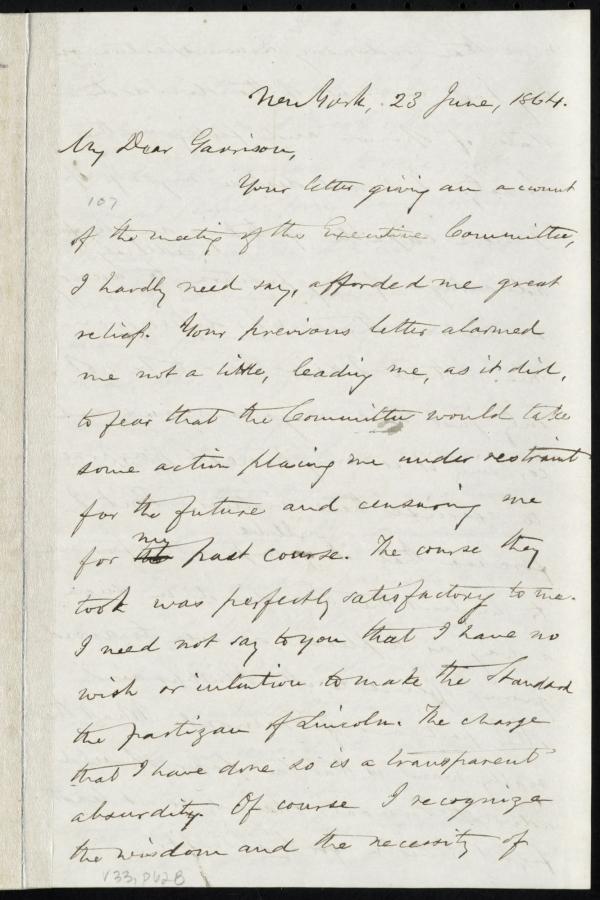 New York, 23 June, 1864.
My Dear Garrison,
Your letter giving an account
107
of the meeting of the Executive Committee,
I hardly need say, afforded me great
relief. Your previous letter alarmed
me not a little, leading me, as it did,
to fear that the Committee would take
some action placing me under restraint
for the future and censuring me
my
for the past course. The course they
took was perfectly satisfactory to me.
I need not say to you that I have no
wish or intention to make the Standard
the partizan of Lincoln. The charge
that I have done so is a transparent
absurdity. Of course I recognize
the wisdom and the necessity of
v.33, p62B